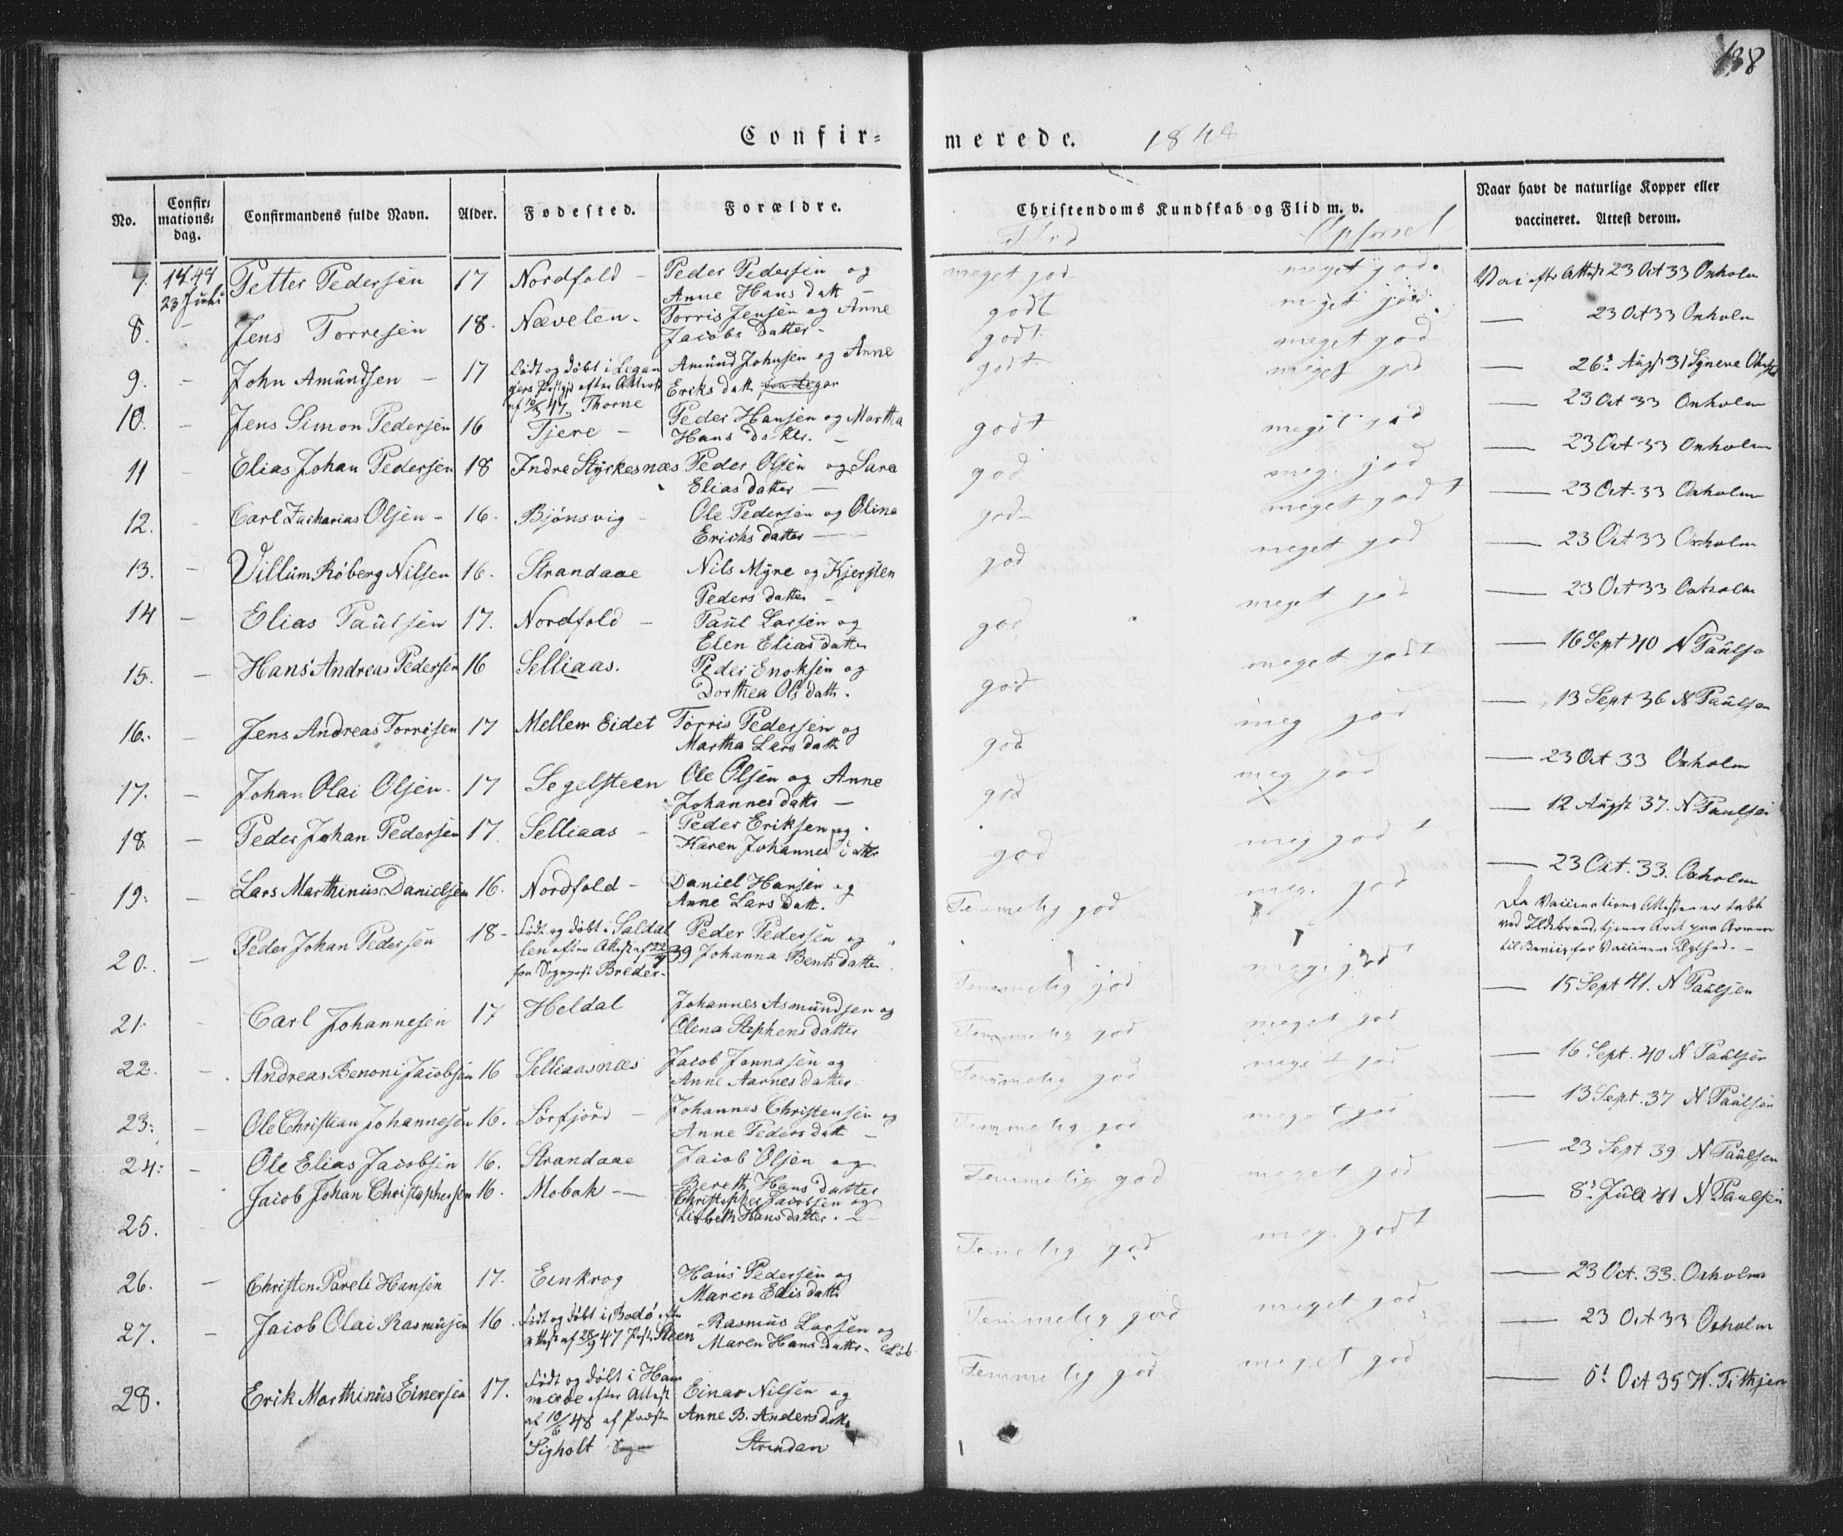 138
Confir= merede. 1848
No. Confirmations=dag. Confirmandens fulde Navn. Alder. Fødested. Forældre. Christendoms Kundskab og Flid m. v. Naar havt de naturlige Kopper eller vaccineret. Attest derom.
Flid
7. 1848 23 Juli Petter Pedersen 17 Nordfold – Peder Pedersen og meget god meget god. 23 Oct 33 Oxholm
Anne Hans datt –
8. – Jens Torresen 18. Nævelen – Torris Jensen og Anne godt meget god. — 23 Oct 33 Oxholm
Jacobs datter –
9. – John Amundsen – 17 Født og døbt i Amund Johnsen og Anne godt meget god — 26 Augst 31
efter Attest Eriks datt
10. – Jens Simon Pedersen 16 Tjere – Peder Hansen og Martha godt meget god — 23 Oct 33 Oxholm
Hans datter. –
11 – Elias Johan Pedersen 18 Indre Styrkesnæs Peder Olsen og Sara god meg. god — 23 Oct 33 Oxholm
Elias datter —
12. – Carl Zacharias Olsen – 16. Bjönsvig – Ole Pedersen og Olina god meget godt — 23 Oct. 33 Oxholm
Erichs datter —
13. – Villum Røberg Nilsen 16. Strandaae Nils Myre og Kjersten god meget god — 23 Oct 33 Oxholm
Peders datter –
14 – Elias Paulsen 17. Nordfold – Paul Larsen og god meget god — 23 Oct 33 Oxholm
Elen Elias datter
15. – Hans Andreas Pedersen 16 Selliaas. Peder Enoksen og god meget godt — 16 Sept 40 N Paulsen
Dorthea Ols datt.
16. – Jens Andreas Torrisen 17 Mellem Eidet Torris Pedersen og god meg god — 13 Sept 36 N Paulsen
Martha Lars datt
17. – Johan Olai Olsen. 17 Segelsteen Ole Olsen og Anne god meg god — 23 Oct 33 Oxholm
Johannes datter —
18. – Peder Johan Pedersen 17. Selliaas – Peder Eriksen og god meg godt — 12 Augst 37. N Paulsen
Karen Johannes datter
19. – Lars Marthinus Danielsen 16. Nordfold – Daniel Hansen og Temmelig god meg. god — 23 Oct. 33. Oxholm
Anne Lars datt.
20. – Peder Johan Pedersen 18 – Født og døbt i Saldalen efter Attest af 39 Peder Pedersen og Temmelig god meget godt Da Vaccinations Attesten er tabt
Breder Johanna Bents datter ved Ildebrand, tjener Arret paa Armen
til Beviis for Vaccinens Ægthed. –
21. – Carl Johannesen 17 Heldal Johannes Asmundsen og Temmelig god meget god — 15 Sept 41. N Paulsen
Olena Stephens datter
22. – Andreas Benoni Jacobsen 16 Selliaasnæs Jacob Jonnasen og Temmelig god meget god — 16 Sept. 40 N Paulsen
Anne Aarnes datter
23. – Ole Christian Johannesen 16. Sørfjord – Johannes Christensen og Temmelig god meget god — 13 Sept. 37 N Paulsen
Anne Peders datt –
24. – Ole Elias Jacobsen 16. Strandaae Jacob Olsen og Temmelig god meget god — 23 Sept 39 N Paulsen
Bereth Hans datter
25. Jacob Johan Christophersen 16. Mobak — Christopher Jacobsen og Temmelig god meg. godt — 8 Juli 41 N Paulsen
Lisbeth Hans datter. –
26. – Christen Pareli Hansen 17. Eenkrog Hans Pedersen og Temmelig god meget god — 23 Oct. 33. Oxholm
Maren Elis datt
27. – Jacob Olai Rasmusen 16. Født og døbt i Bodø Rasmus Larsen og Temmelig god meget god — 23 Oct 33 Oxholm
Attest af 28/9 47 Steen Maren Hans datter
28. Erik Marthinus Einersen 17. Født og døbt i Hammerøe efter Attest Einar Nilsen og — 5 Oct 35
af 10/6 48 af Præsten Anne B. Anders datt
Sigholt Strindan